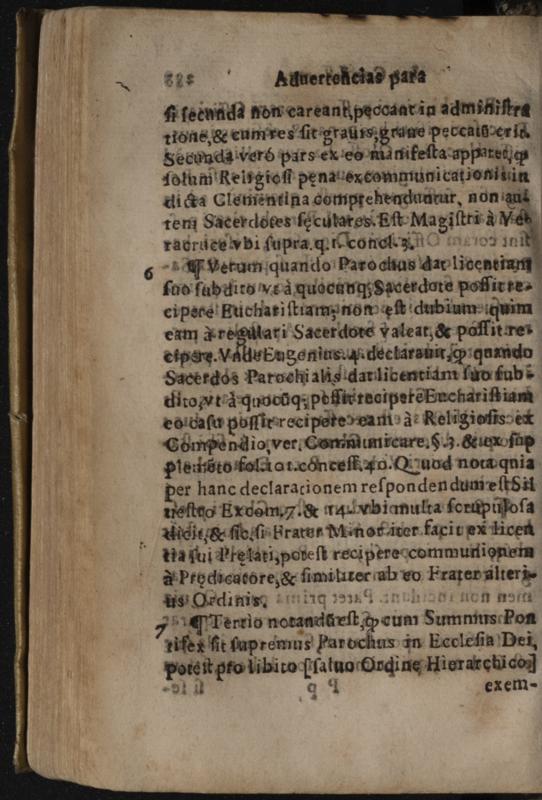 Aduertencias para
si secunda non careant, peccant in administra
tione, & cum res sit grauis, graue peccatũ erit.
Secunda veró pars ex eo manifesta apparet, q̃
solum Religiosi pęna excommunicationis in
dicta Clementina comprehenduntur, non aũ
tem Sacerdotes sęculares. Est Magistri à Ve
racruce vbi supra. q. 1. concl. 3.
6 ¶ Verum quando Parochus dat licentiam
suo subdito vt à quocunq; Sacerdote possit re-
cipere Eucharistiam, non est dubium quim
eam à regulari Sacerdote valeat, & possit re-
cipere. Vnde Eugenius. 4. declarauit, q̃ quando
Sacerdos Parochialis dat licentiam suo sub-
dito, vt à quocũq; possit recipere Eucharistiam
eo casu possit recipere eam à Religiosis ex
Compendio, ver. Communicare. §. 3. & ex sup
plemẽto fol. 101. concess. 40. Quod nota quia
per hanc declarationem respondendum est Sil
uestro Excom. 7. & 14. vbi multa scrupulosa
dicit, & sic si Frater Minor iter facit ex licen
tia sui Pręlati, potest recipere communionem
à Prędicatore, & similiter ab eo Frater alteri-
us Ordinis.
7 ¶ Tertio notandũ est, q̃ cum Summus Pon
tifex sit supremus Parochus in Ecclesia Dei,
potest pro libito [saluo Ordine Hierarchico]
exem-